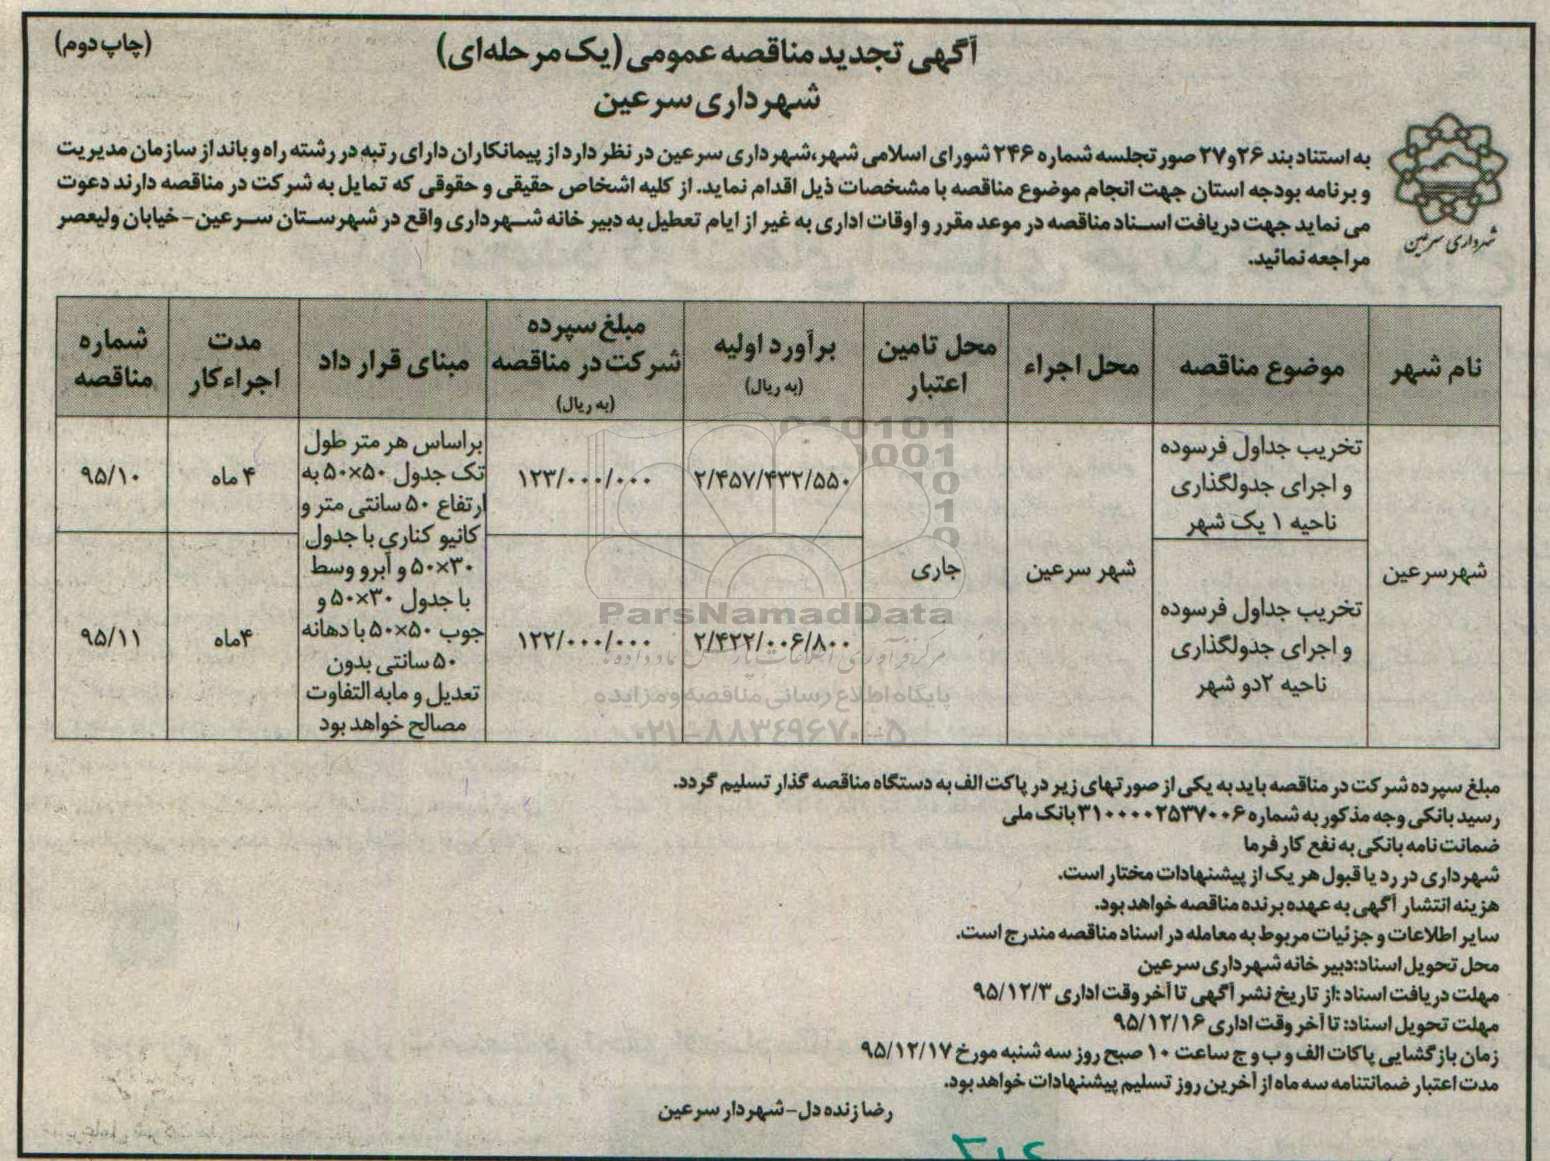 آگهی تجدید مناقصه عمومی (یک مرحله‌ای)
(چاپ دوم)
شهرداری سرعین
شهرداری سرعین
به استناد بند ۲۶و۲۷ صورتجلسه شماره ۲۴۶ شورای اسلامی شهر،شهرداری سرعین در نظر دارد از پیمانکاران دارای رتبه در رشته راه و باند از سازمان مدیریت
و برنامه بودجه استان جهت انجام موضوع مناقصه با مشخصات ذیل اقدام نماید. از کلیه اشخاص حقیقی و حقوقی که تمایل به شرکت در مناقصه دارند دعوت
می نماید جهت دریافت اسناد مناقصه در موعد مقرر و اوقات اداری به غیر از ایام تعطیل به دبیر خانه شهرداری واقع در شهرستان سرعین- خیابان ولیعصر
مراجعه نمائید.
نام شهر
موضوع مناقصه
محل اجراء
محل تامین
اعتبار
برآورد اولیه
(به ریال)
مبلغ سپرده
شرکت در مناقصه
(به ریال)
مبنای قرار داد
مدت
اجراء کار
شماره
مناقصه
شهرسرعین
تخریب جداول فرسوده
و اجرای جدولگذاری
ناحیه ۱ یک شهر
شهر سرعین
جاری
۲/۴۵۷/۴۳۲/۵۵۰
۱۲۳/۰۰۰/۰۰۰
براساس هر متر طول
تک جدول ۵۰×۵۰ به
ارتفاع ۵۰ سانتی متر و
کانیو کناری با جدول
۳۰×۵۰ و آبرو وسط
با جدول ۳۰×۵۰ و
جوب ۵۰×۵۰ با دهانه
۵۰ سانتی بدون
تعدیل و مابه التفاوت
مصالح خواهد بود
۴ ماه
۹۵/۱۰
تخریب جداول فرسوده
و اجرای جدولگذاری
ناحیه ۲دو شهر
۲/۴۲۲/۰۰۶/۸۰۰
۱۲۲/۰۰۰/۰۰۰
۴ماه
۹۵/۱۱
ParsNamadData
پایگاه اطلاع رسانی مناقصه و مزایده
۰۲۱-۸۸۳۴۹۶۷۰-۵
مبلغ سپرده شرکت در مناقصه باید به یکی از صورتهای زیر در پاکت الف به دستگاه مناقصه گذار تسلیم گردد.
رسید بانکی وجه مذکور به شماره ۳۱۰۰۰۰۲۵۳۷۰۰۶ بانک ملی
ضمانت نامه بانکی به نفع کارفرما
شهرداری در رد یا قبول هر یک از پیشنهادات مختار است.
هزینه انتشار آگهی به عهده برنده مناقصه خواهد بود.
سایر اطلاعات و جزئیات مربوط به معامله در اسناد مناقصه مندرج است.
محل تحویل اسناد:دبیر خانه شهرداری سرعین
مهلت دریافت اسناد :از تاریخ نشر آگهی تا آخر وقت اداری ۹۵/۱۲/۳
مهلت تحویل اسناد: تا آخر وقت اداری ۹۵/۱۲/۱۶
زمان بازگشایی پاکات الف و ب و ج ساعت ۱۰ صبح روز سه شنبه مورخ ۹۵/۱۲/۱۷
مدت اعتبار ضمانتنامه سه ماه از آخرین روز تسلیم پیشنهادات خواهد بود.
رضا زنده دل- شهردار سرعین